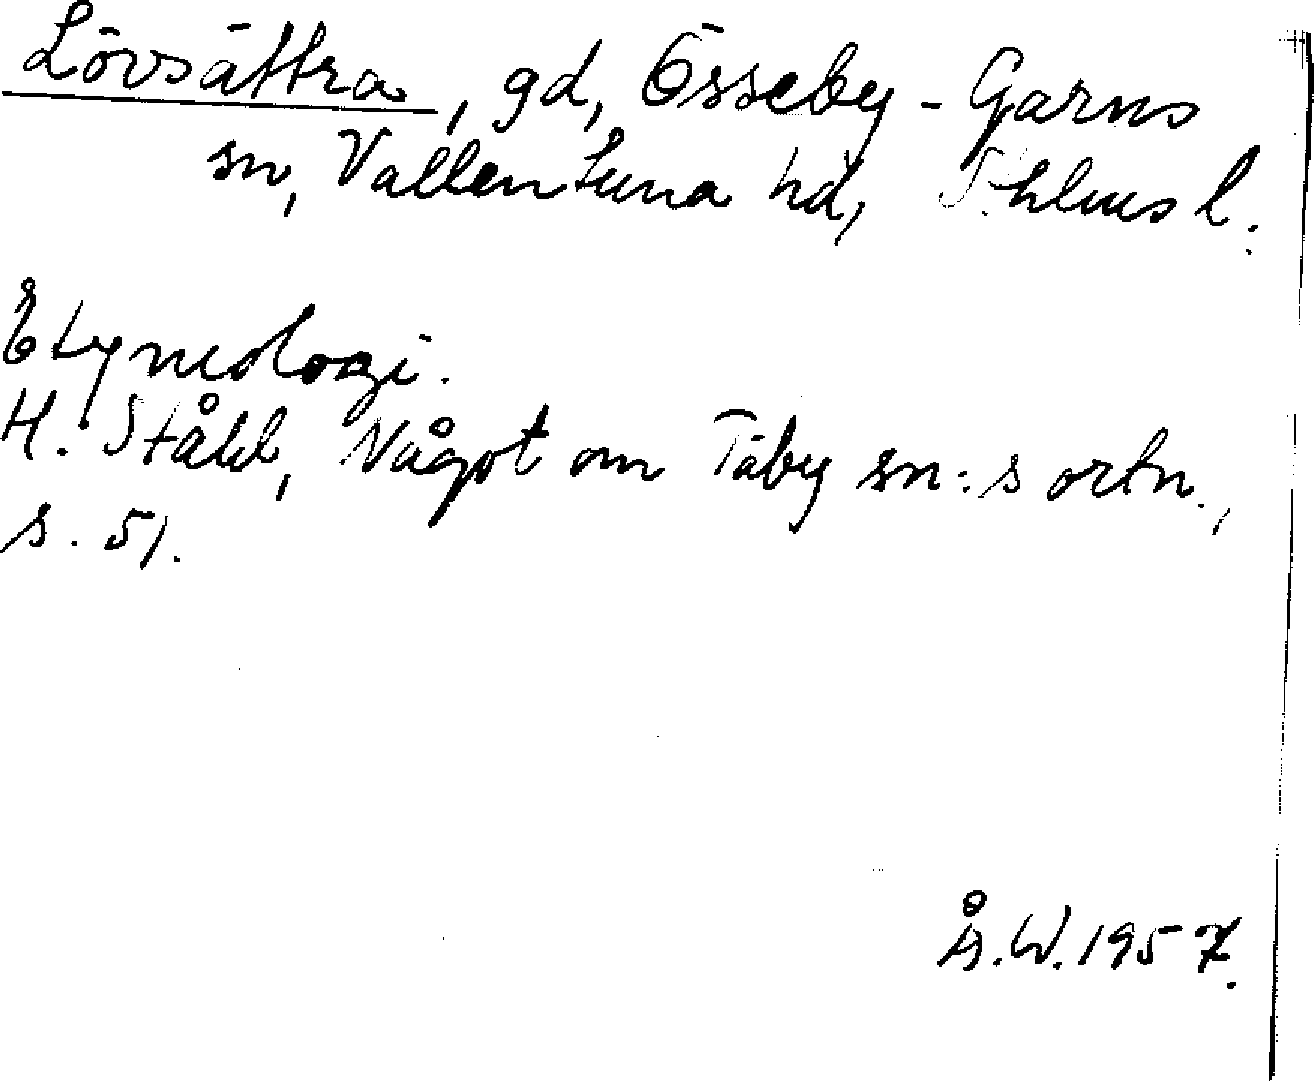 Lövsättra, gd, Össeby-Garns
sn, Vallentuna hd, Sthlms l.
Etymologi.
H. Ståhl, Något om Täby sn:s ortn.,
s. 51.
Å.W. 1957.